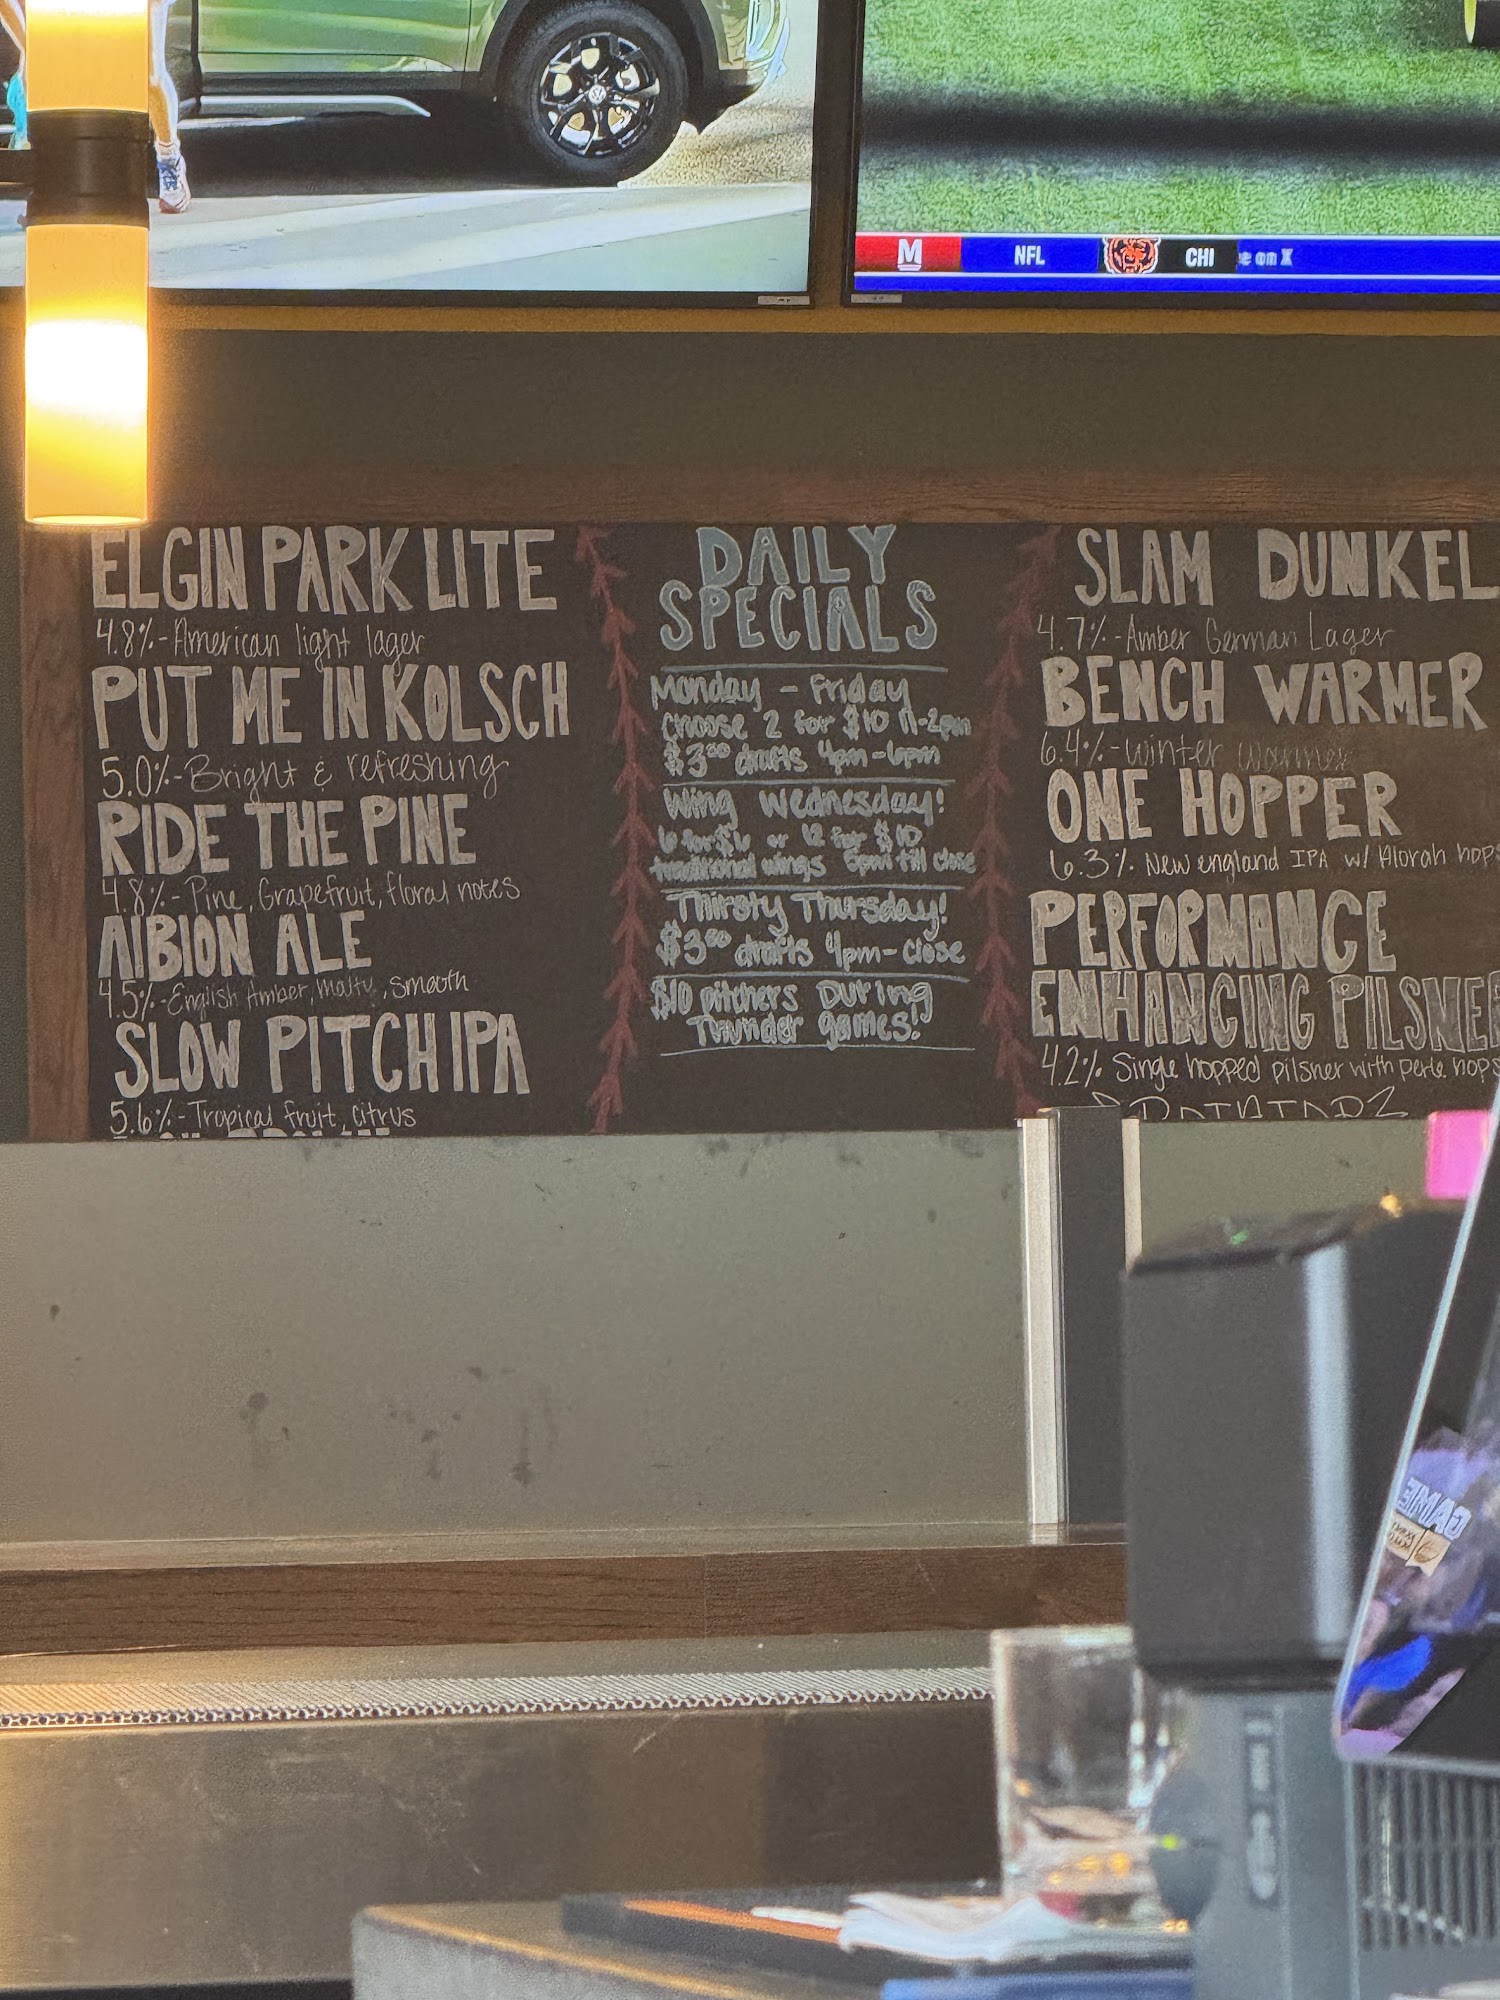 M NFL CHI
ELGIN PARK LITE
4.8%-American light lager
PUT ME IN KOLSCH
5.0%-Bright & refreshing
RIDE THE PINE
4.8%-Pine, Grapefruit, floral notes
ALBION ALE
4.5%-English Amber, malty, smooth
SLOW PITCH IPA
5.6%-Tropical fruit, citrus
DAILY
SPECIALS
Monday - Friday
choose 2 for $10 11-2pm
$3.00 drafts 4pm-6pm
Wing Wednesday!
6 for $6 or 12 for $10
traditional wings 5pm till close
Thirsty Thursday!
$3.00 drafts 4pm-close
$10 pitchers During
Thunder games!
SLAM DUNKEL
4.7%-Amber German Lager
BENCH WARMER
6.4%-winter warmer
ONE HOPPER
6.3% New england IPA w/ Alorah hops
PERFORMANCE
ENHANCING PILSNER
4.2% Single hopped pilsner with perle hops
GAME